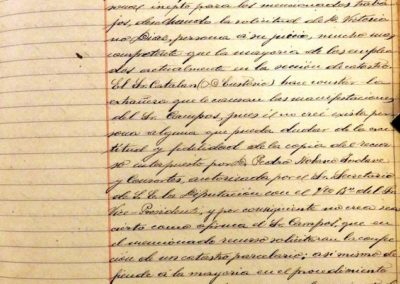 sonas, inepto para los mencionados traba-
jos, desechando la solicitud de D. Victoria-
no Diaz, persona a su juicio, mucho mas
competente que la mayoria de los emplea-
dos actualmente en la seccion de catastro.
El Sr. Catalan (D. Eusebio) hace constar la
extrañeza que le causan las manifestaciones
del Sr. Campos, pues él no cree exista per-
sona alguna que pueda dudar de la exac-
titud y fidelidad de la copia del recur-
so interpuesto por D. Pedro Moreno
y Consortes, autorizada por el Sr. Secretario
de la Diputacion con el Vto. Bno. del Sr.
Vice-Presidente, y por consiguiente no cree sea
cierto como afirma el Sr. Campos, que en
el mencionado recurso solicitaran la confec-
cion de un catastro parcelario; asi mismo de-
fiende á la mayoria en el procedimiento